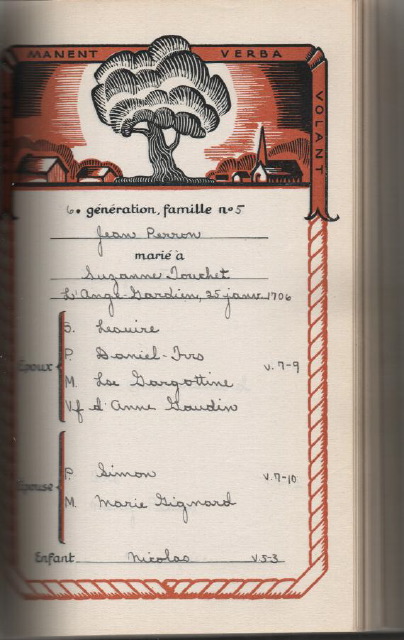 MANENT VERBA VOLANT
6e génération, famille no 5
Jean Perron
marié à
Suzanne Touchet
L'Ange-Gardien, 25 janv. 1706
Époux
S.
P. Daniel-Frs v. 7-9
M. Lse Gargottine
Vf d'Anne Gaudin
Épouse
P. Simon v. 7-10
M. Marie Gignard
Enfant Nicolas v. 5-3